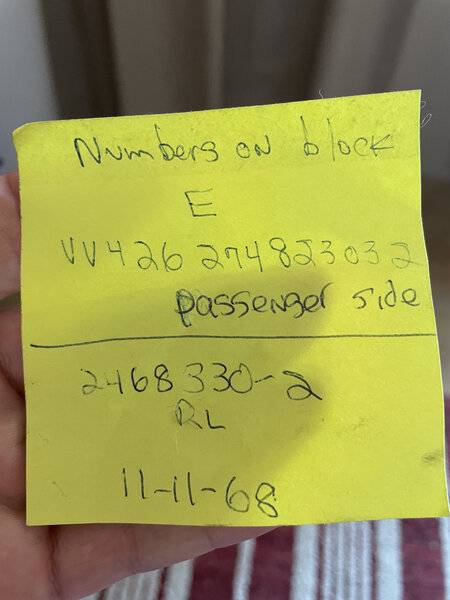 Numbers on block
E
VV426 274823032
passenger side
2468330-2
RL
11-11-68